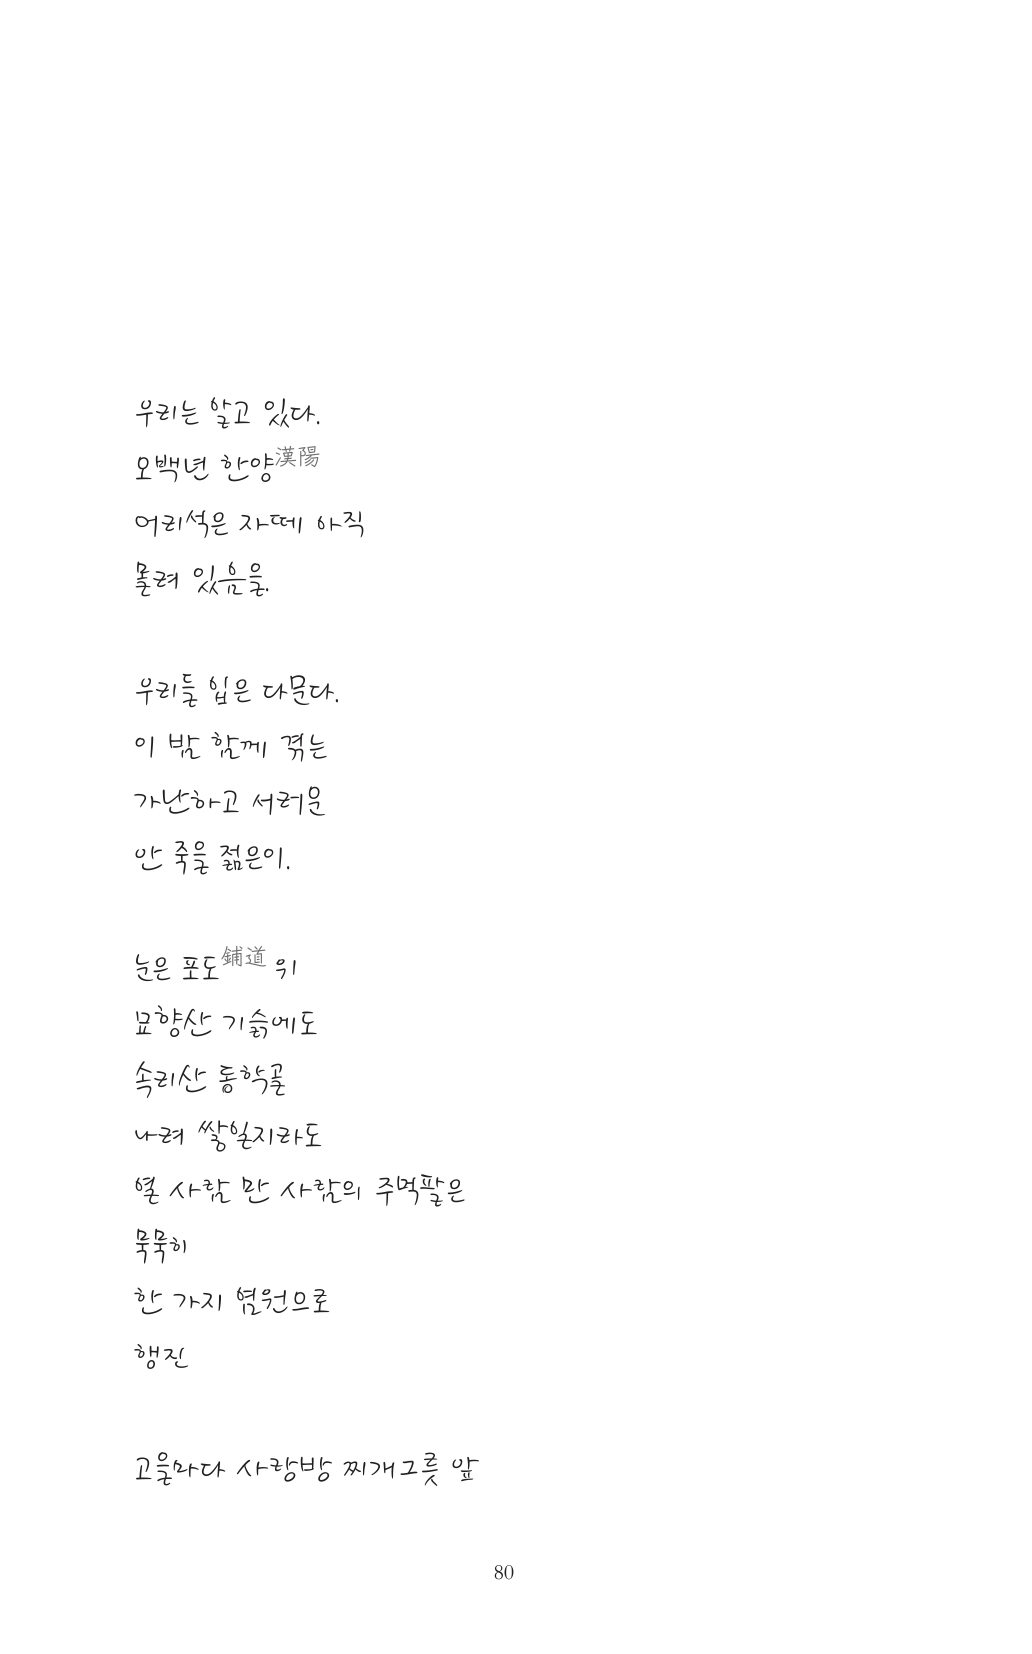 우리는 알고 있다.
오백년 한양漢陽
어리석은 자떼 아직
몰려 있음을.
우리들 입은 다문다.
이 밤 함께 겪는
가난하고 서러운
안 죽을 젊은이.
눈은 포도鋪道 위
묘향산 기슭에도
속리산 동학골
나려 쌓일지라도
열 사람 만 사람의 주먹팔은
묵묵히
한 가지 염원으로
행진
고을마다 사랑방 찌개그릇 앞
80